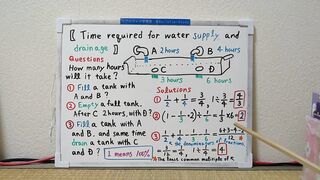 【 Time required for water supply and
drainage 】
A 2 hours
B 4 hours
Questions
How many hours
will it take?
C
D
3 hours
6 hours
① Fill a tank with
A and B?
② Empty a full tank.
After C 2 hours, with D?
③ Fill a tank with A
and B. and same time
drain a tank with C
and D?
1 means 100%
Solutions
① 1/2 + 1/4 = 3/4, 1 ÷ 3/4 = 4/3
② (1 - 1/3 × 2) ÷ 1/6 = 1/3 × 6 = 2
③ 1/2 + 1/4 - 1/3 - 1/6 = (6+3-4-2)/12
= 3/12 = 1/4, 1 ÷ 1/4 = 4
The least common multiple of